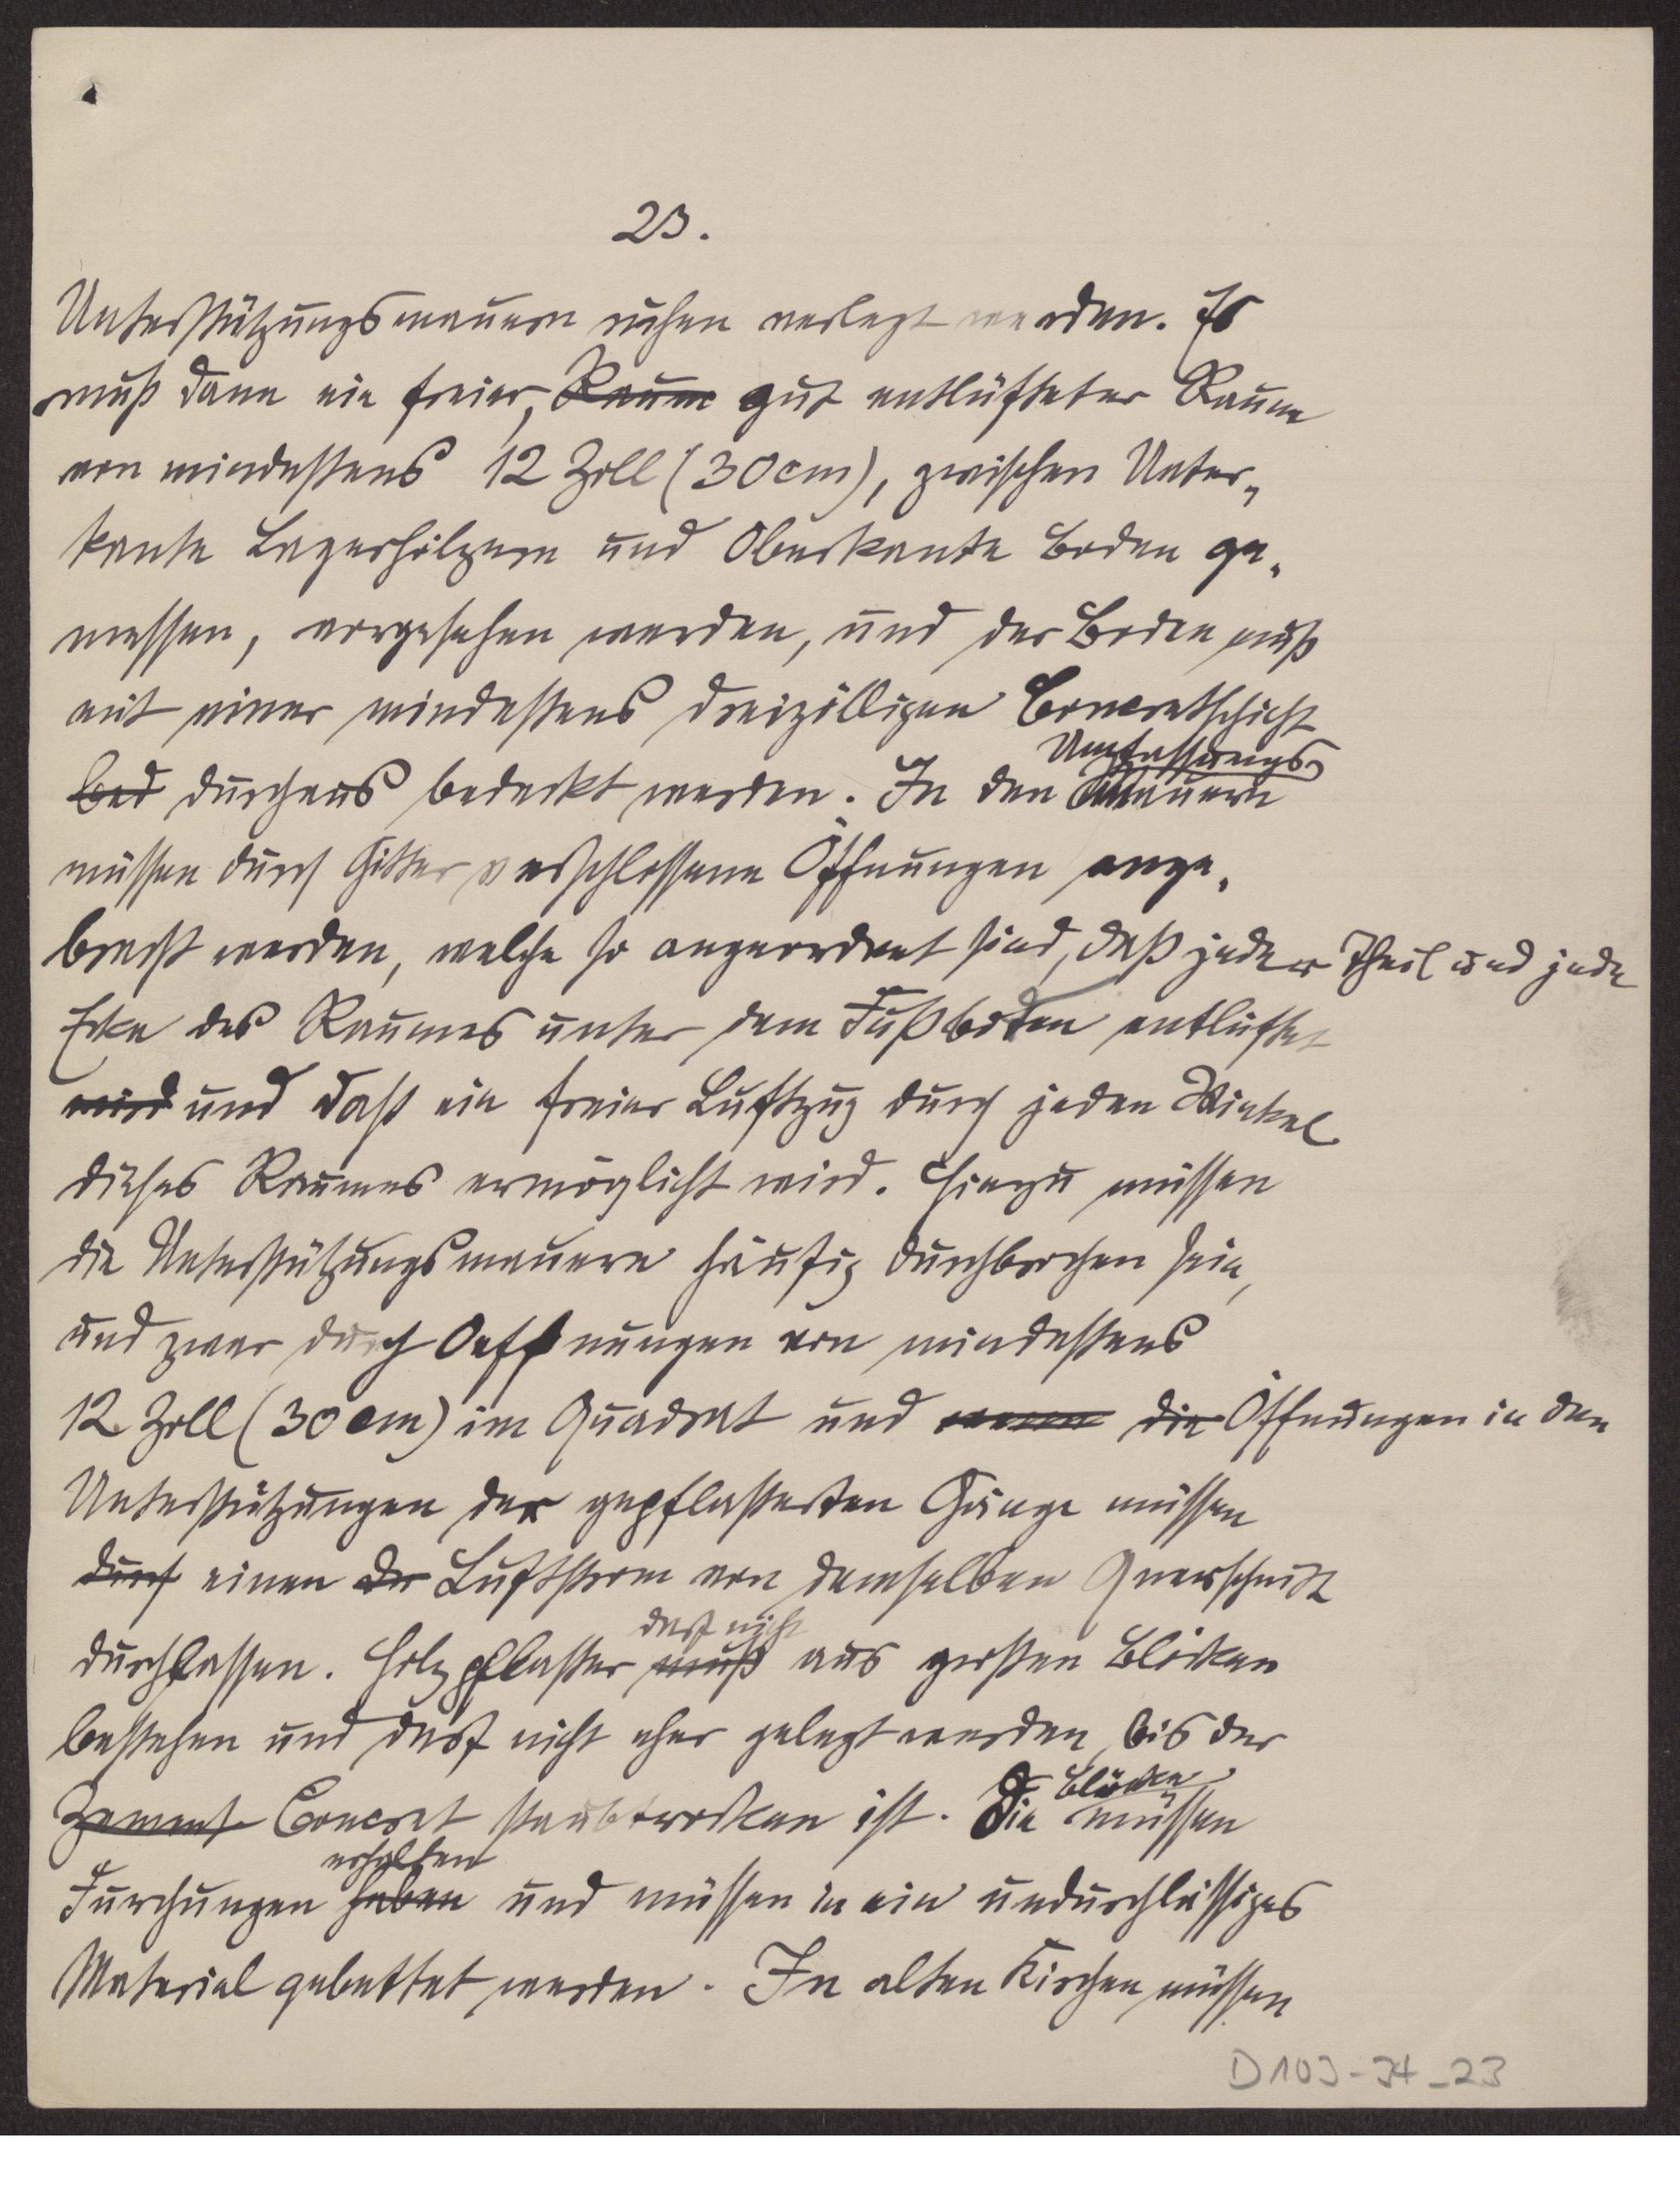 23.
Unterstützungsmauern ruhen verlegt werden. Es
muß dann ein freier, Raum gut entlüfteter Raum
von mindestens 12 Zoll (30 cm), zwischen Unter-
kante Lagerhölzern und Oberkante Boden ge-
messen, vorgesehen werden, und der Boden muß
mit einer mindestens dreizölligen Concretschicht
Umfassungs
bed durchaus bedeckt werden. In den Mauern
müssen durch Gitter verschlossene Öffnungen ange-
bracht werden, welche so angeordnet sind, daß jeder Theil und jede
Ecke des Raumes unter dem Fußboden entlüftet
wird und daß ein freier Luftzug durch jeden Winkel
dieses Raumes ermöglicht wird. Hierzu müssen
die Unterstützungsmauern häufig durchbrochen sein,
und zwar durch Oeffnungen von mindestens
12 Zoll (30 cm) im Quadrat und wenn die Öffnungen in den
Unterstützungen der gepflasterten Gänge müssen
durch einen der Luftstrom von demselben Querschnitt
darf nicht
durchlassen. Holzpflaster muß aus großen Blöcken
bestehen und darf nicht eher gelegt werden, bis der
Blöcke
Zement Concret staubtrocken ist. Die müssen
erhalten
Furchungen haben und müssen in ein undurchlässiges
Material gebettet werden. In alten Kirchen müssen
D103-34_23